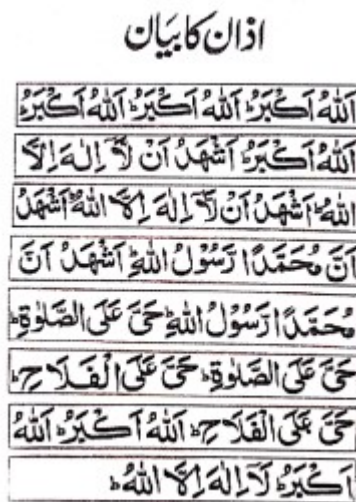 اذان کا بیان
اَللهُ اَكْبَرُ ؕ اَللهُ اَكْبَرُ ؕ اَللهُ اَكْبَرُ ؕ
اَللهُ اَكْبَرُ ؕ اَشْهَدُ اَنْ لَّاۤ اِلٰهَ اِلَّا
اللهُ ؕ اَشْهَدُ اَنْ لَّاۤ اِلٰهَ اِلَّا اللهُ ؕ اَشْهَدُ
اَنَّ مُحَمَّدًا رَّسُوْلُ اللهِ ؕ اَشْهَدُ اَنَّ
مُحَمَّدًا رَّسُوْلُ اللهِ ؕ حَیَّ عَلَی الصَّلٰوةِ ؕ
حَیَّ عَلَی الصَّلٰوةِ ؕ حَیَّ عَلَی الْفَلَاحِ ؕ
حَیَّ عَلَی الْفَلَاحِ ؕ اَللهُ اَكْبَرُ ؕ اَللهُ
اَكْبَرُ ؕ لَاۤ اِلٰهَ اِلَّا اللهُ ؕ